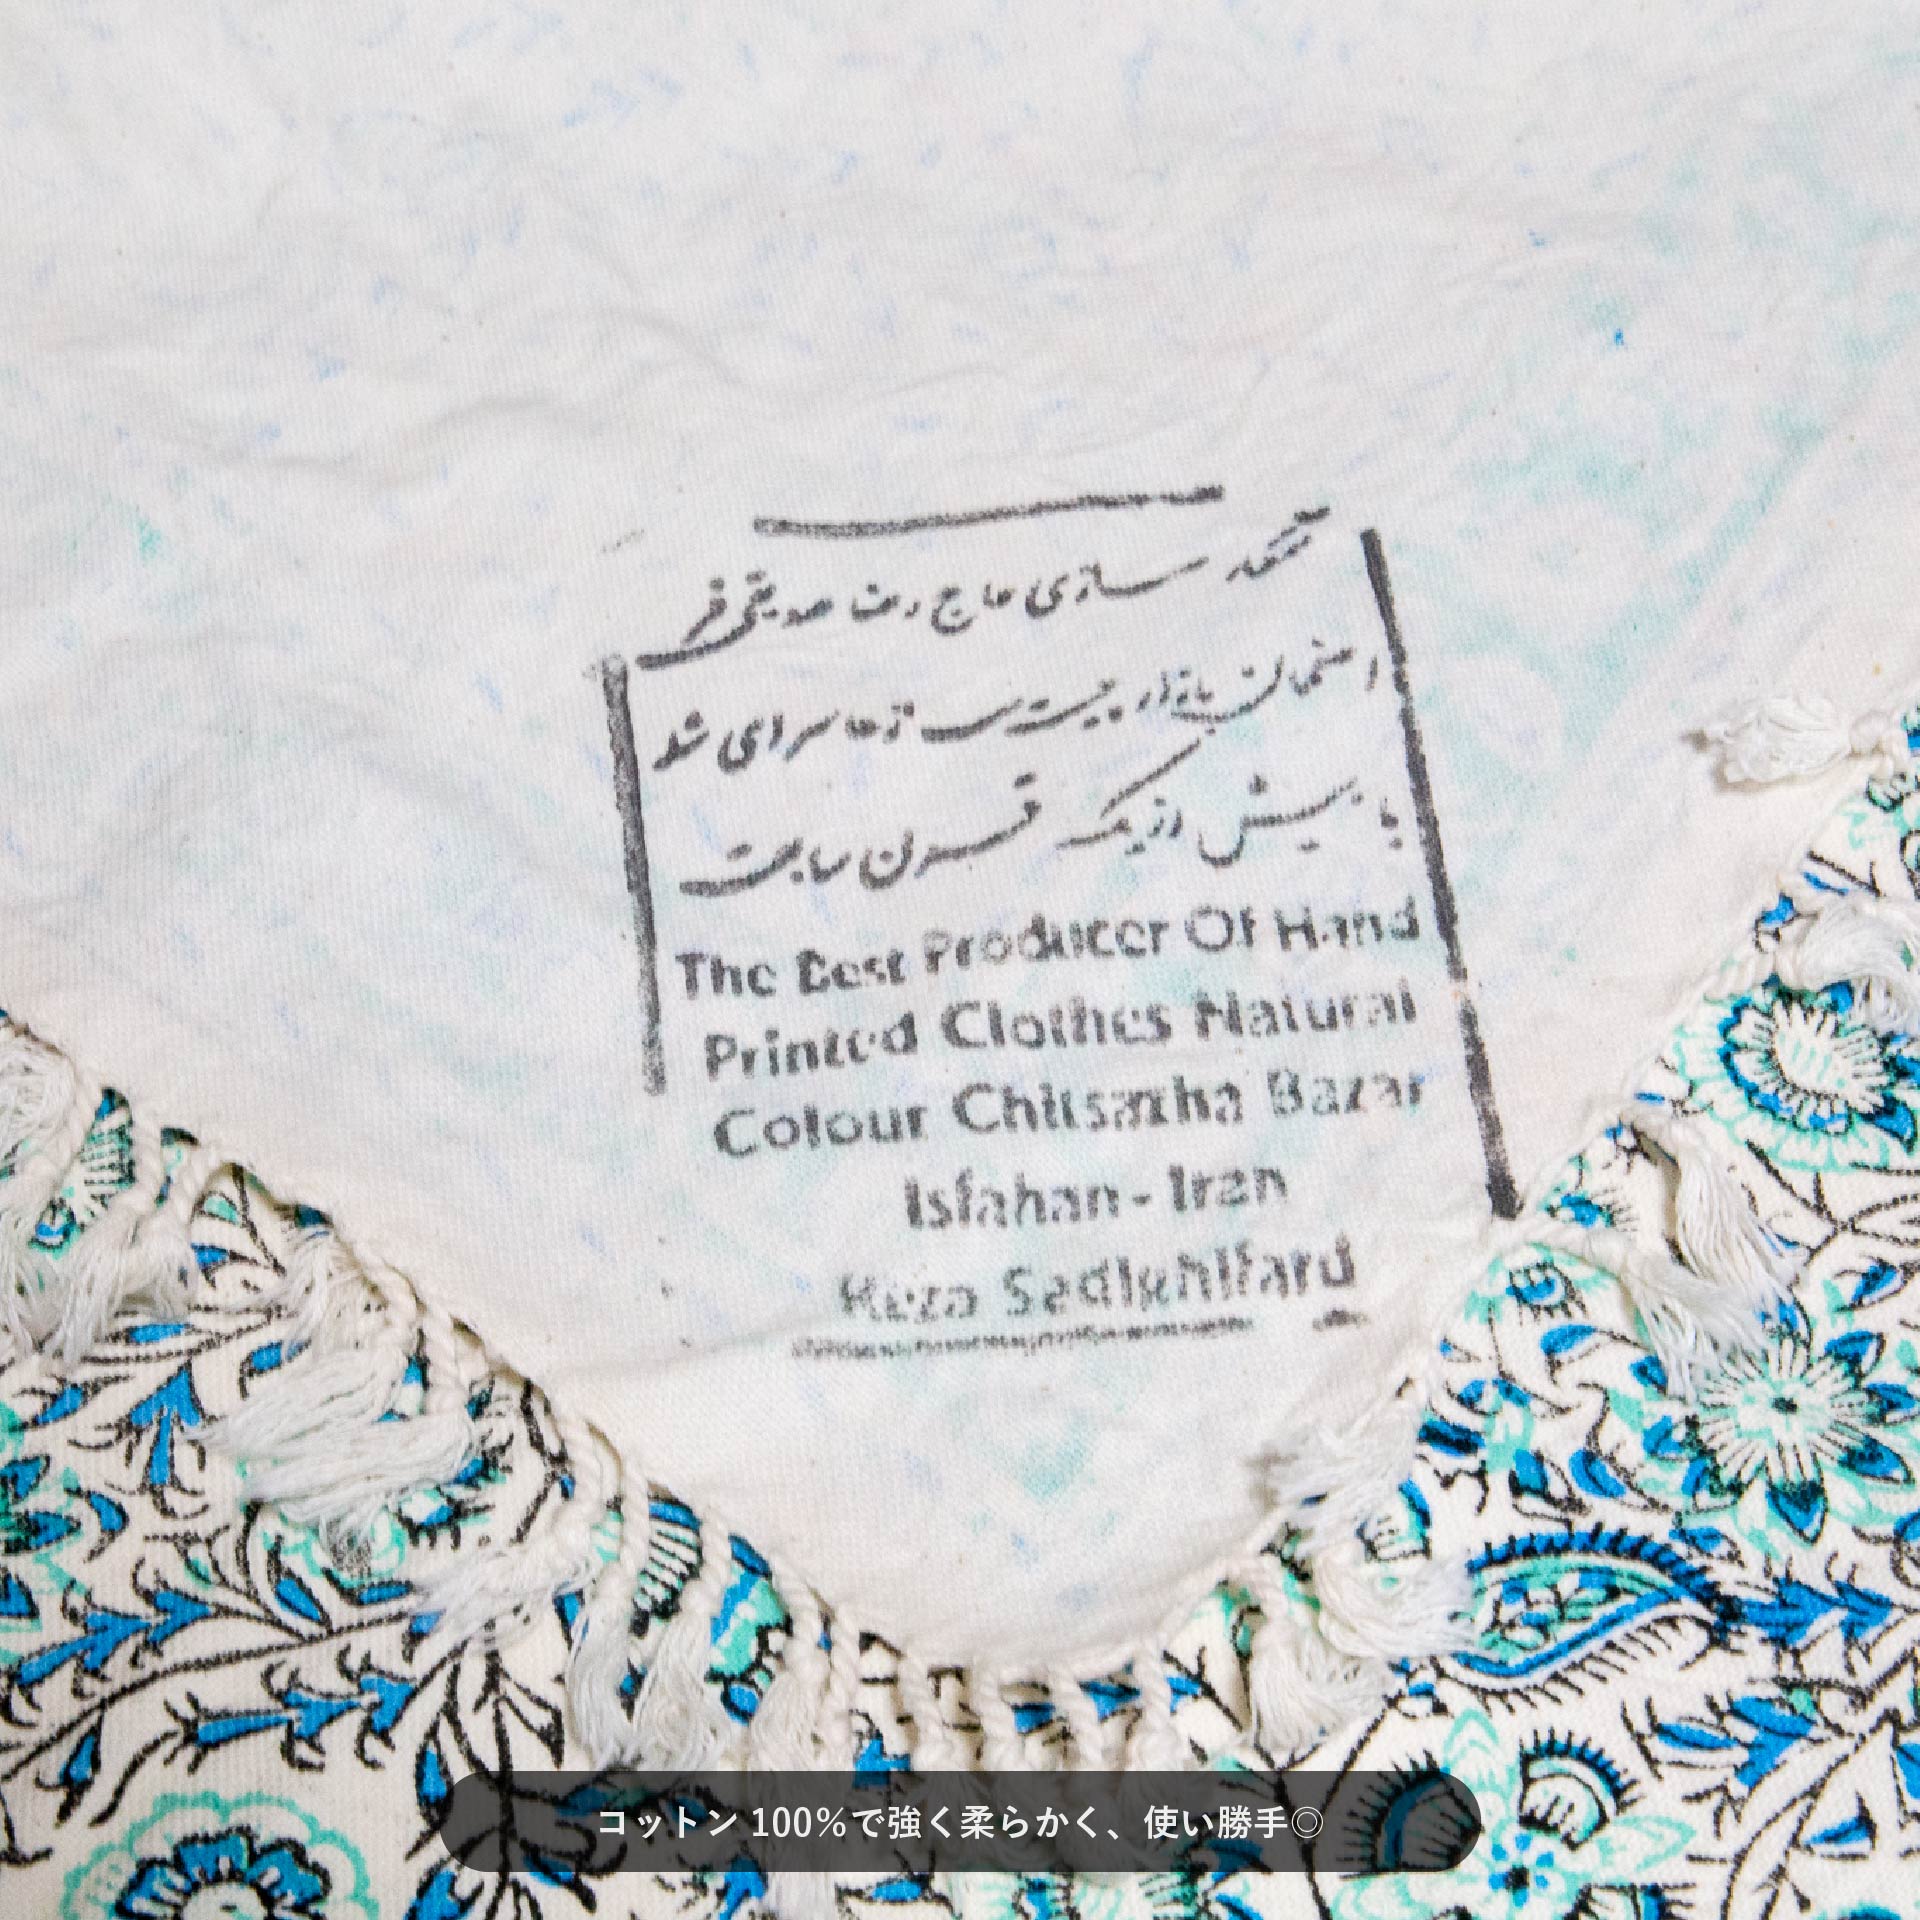 سازی حاج رضا صدیقی فر
اصفهان بازار چیت سازها سرای شد
با بیش از یک قرن سابقه
The Best Producer Of Hand
Printed Clothes Natural
Colour Chitsazha Bazar
Isfahan - Iran
Reza Sadighifard
コットン 100%で強く柔らかく、使い勝手◎